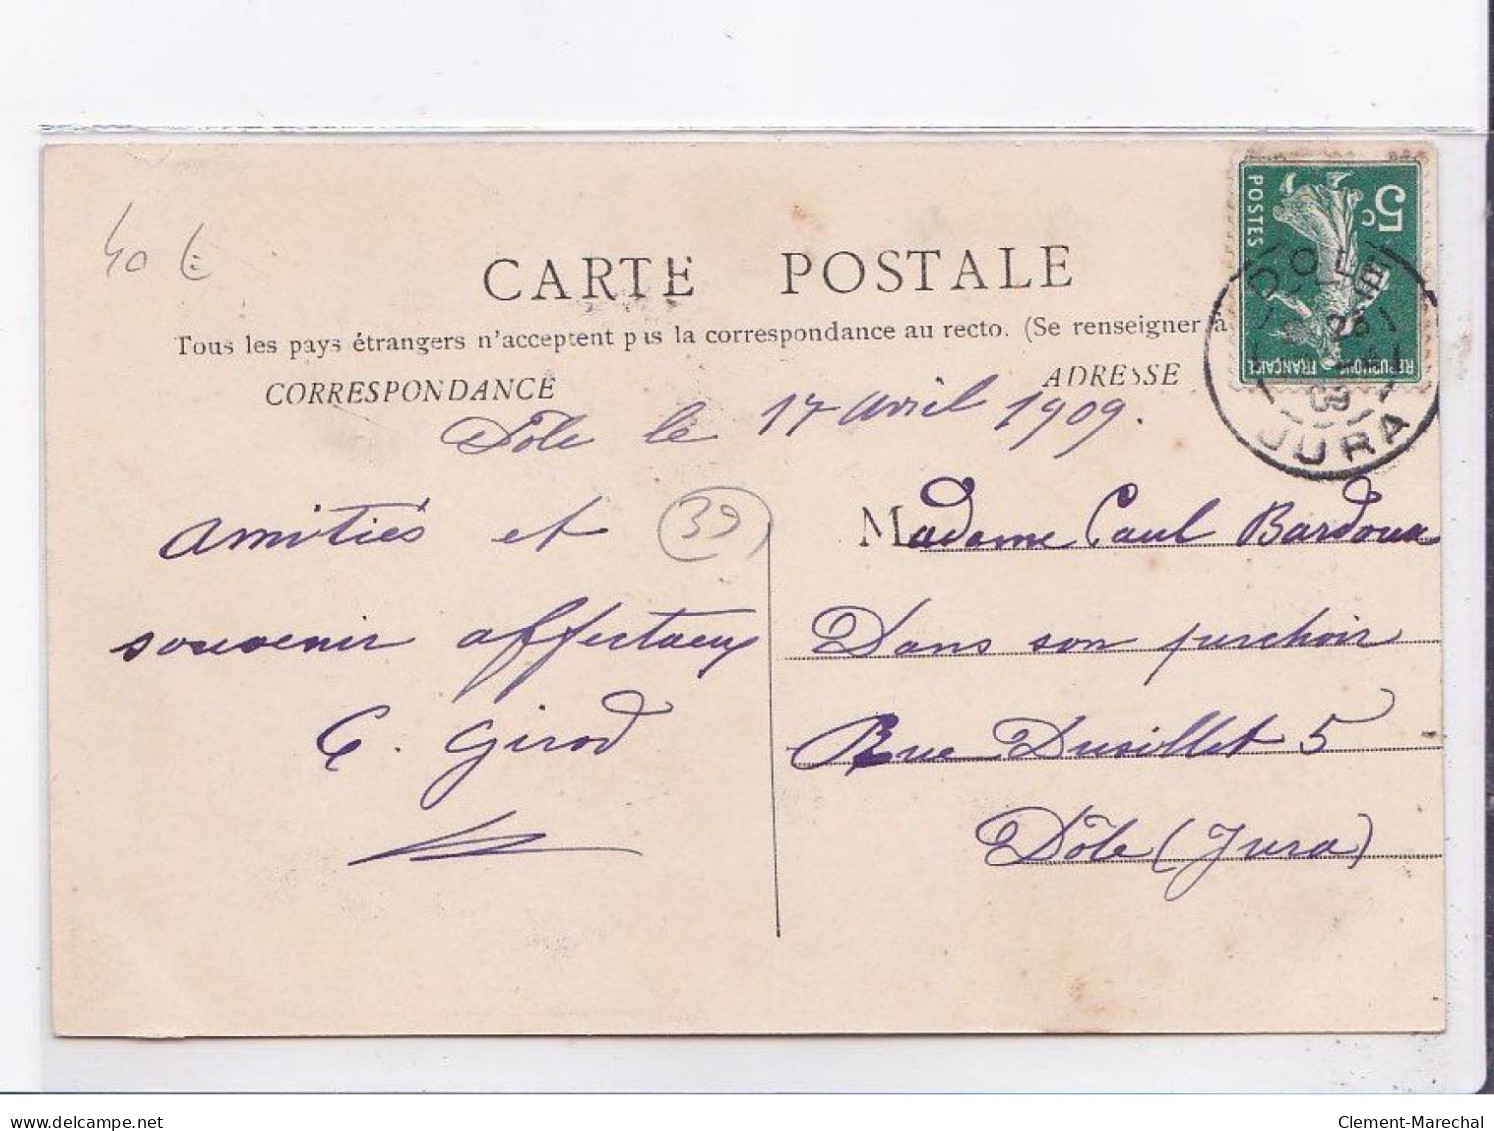 40 €
CARTE POSTALE
Tous les pays étrangers n'acceptent pas la correspondance au recto. (Se renseigner à
CORRESPONDANCE
ADRESSE
POSTES
5c
REPUBLIQUE FRANÇAISE
DOLE
28
09
JURA
Dôle le 17 avril 1909.
Amitiés et
39
souvenir affectueux
C. Girod
Madame Paul Bardoux
Dans son perchoir
Rue Dusillet 5
Dôle (Jura)
delcampe.net
Clement-Marechal